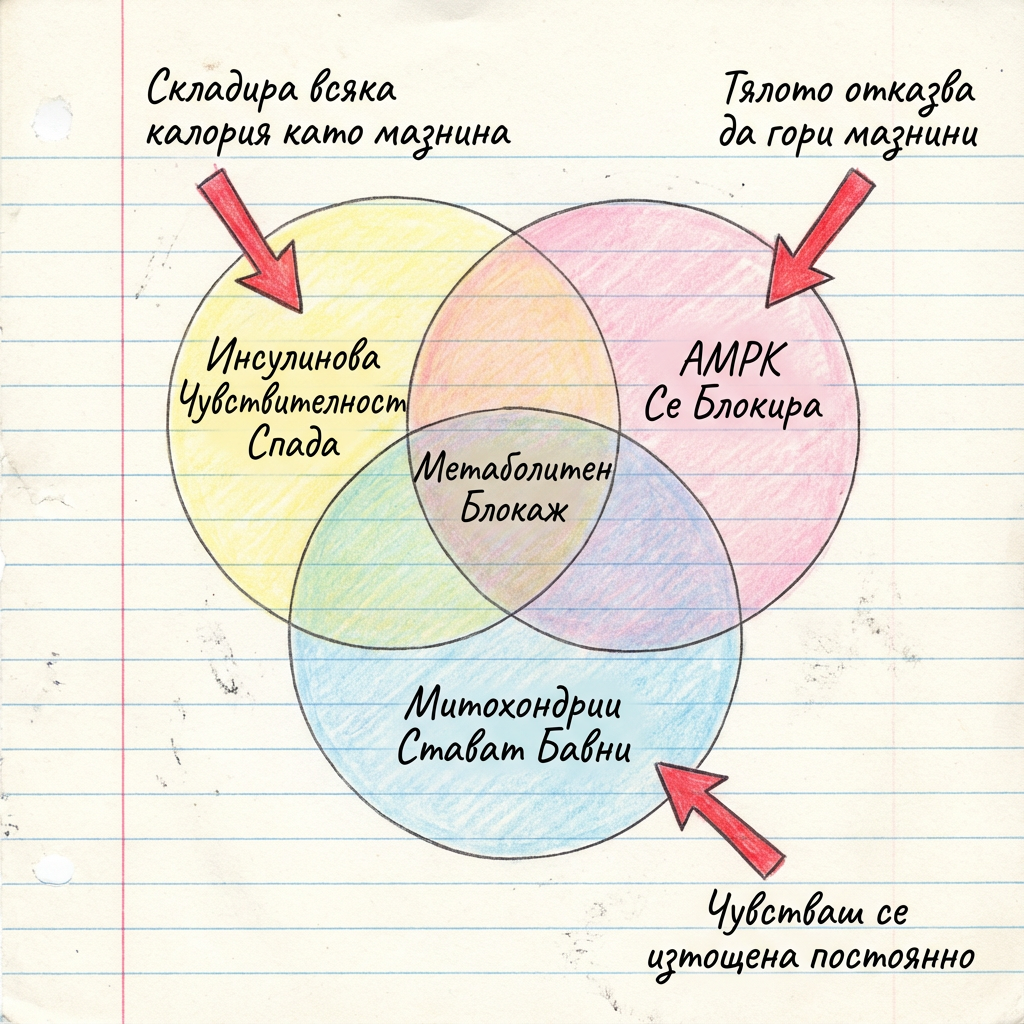 Складира всяка
калория като мазнина
Тялото отказва
да гори мазнини
Инсулинова
Чувствителност
Спада
АМРК
Се Блокира
Метаболитен
Блокаж
Митохондрии
Стават Бавни
Чувстваш се
изтощена постоянно